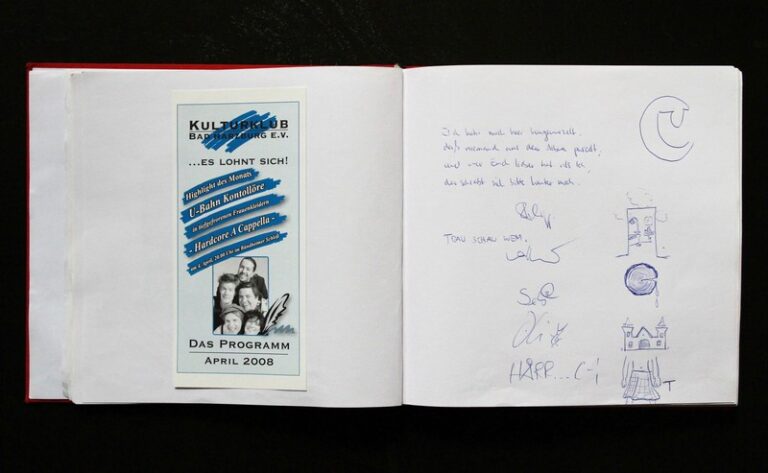 KULTURKLUB
BAD HARZBURG E.V.
...ES LOHNT SICH!
Highlight des Monats
U-Bahn Kontollöre
in tiefgefrorenen Frauenkleidern
- Hardcore A Cappella -
am 4. April, 20.00 Uhr im Bündheimer Schloß
DAS PROGRAMM
APRIL 2008
Ich hab mich hier
daß niemand aus dem
und wer Euch lieber hat als ich,
der schreibt sich bitte hinter mich.
TRAU SCHAU WEM.
HARR...
U
T